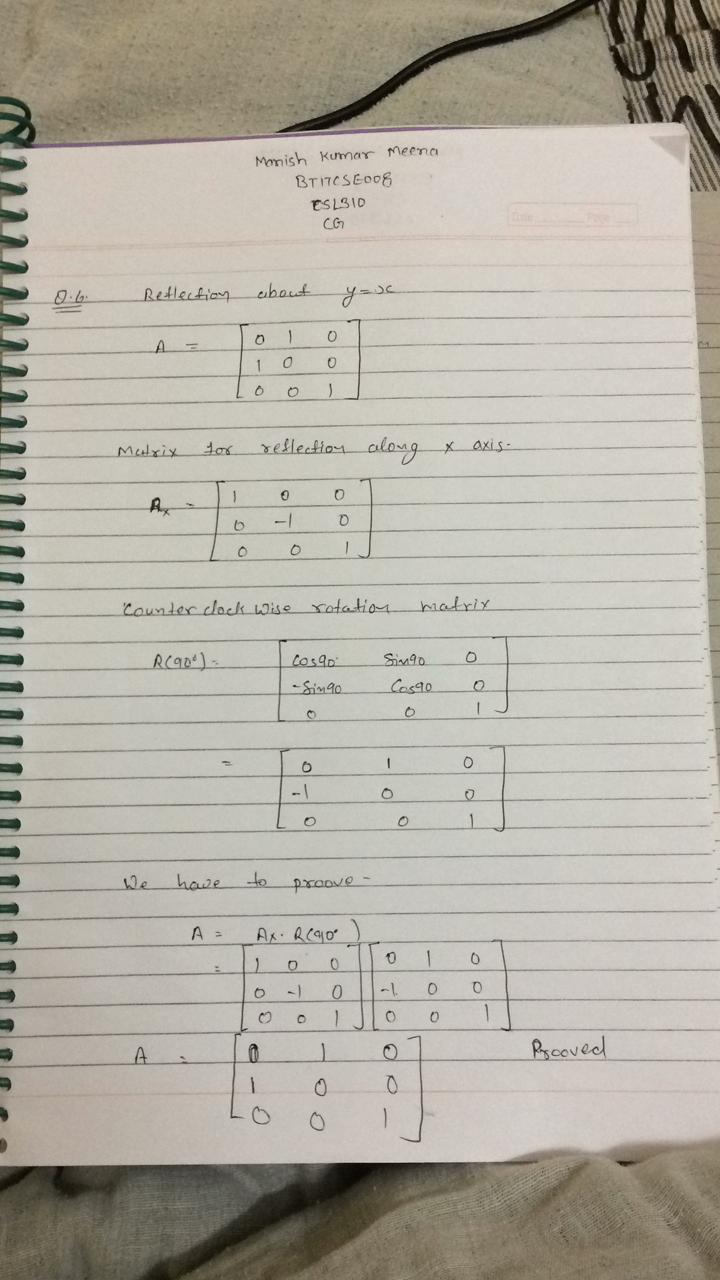 Manish Kumar Meena
BT17CSE008
CSL310
CG
Date Page
Q.6. Reflection about y=x
A = [0 1 0
1 0 0
0 0 1]
Matrix for reflection along x axis-
Ax = [1 0 0
0 -1 0
0 0 1]
Counter clock wise rotation matrix
R(90°) = [Cos90 Sin90 0
-Sin90 Cos90 0
0 0 1]
= [0 1 0
-1 0 0
0 0 1]
We have to proove -
A = Ax. R(90°)
= [1 0 0 [0 1 0
0 -1 0 -1 0 0
0 0 1] 0 0 1]
A = [0 1 0 Prooved
1 0 0
0 0 1]